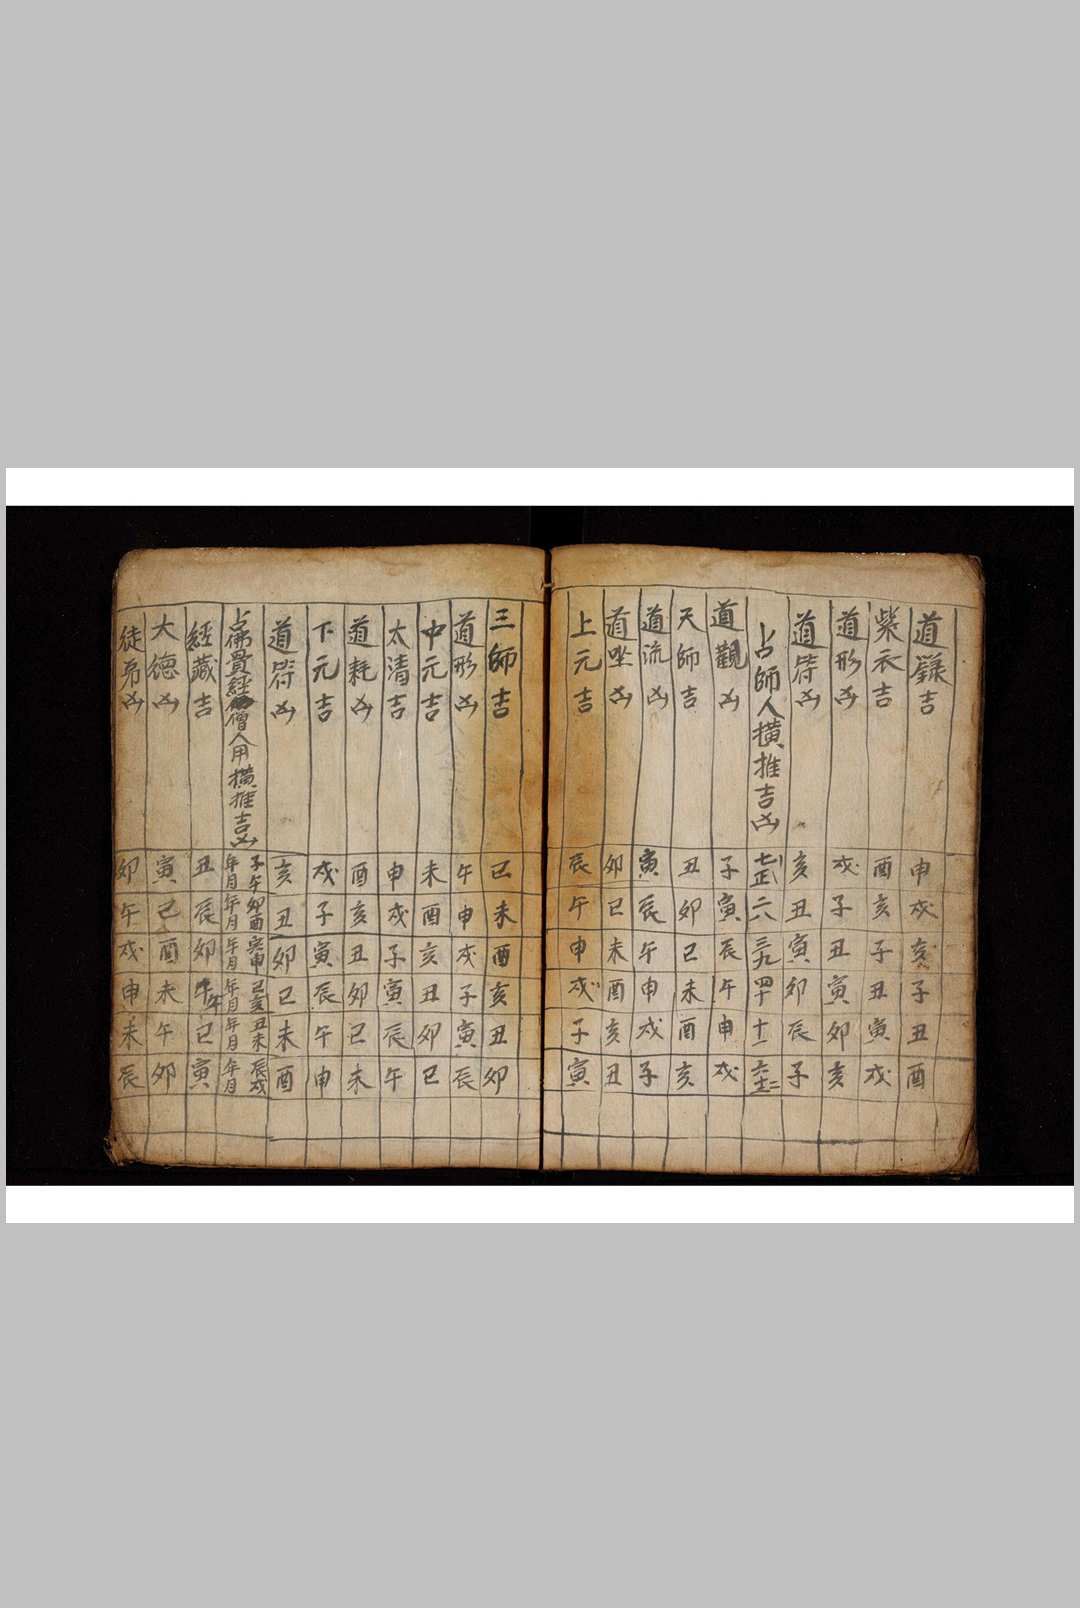 道籙吉 申 戌 亥 子 丑 酉
紫衣吉 酉 亥 子 丑 寅 戌
道形凶 戌 子 丑 寅 卯 亥
道符凶 亥 丑 寅 卯 辰 子
占師人橫推吉凶 七正 二八 三九 四十 十一 六十二
道觀凶 子 寅 辰 午 申 戌
天師吉 丑 卯 巳 未 酉 亥
道流凶 寅 辰 午 申 戌 子
道坐凶 卯 巳 未 酉 亥 丑
上元吉 辰 午 申 戌 子 寅
三師吉 巳 未 酉 亥 丑 卯
道形凶 午 申 戌 子 寅 辰
中元吉 未 酉 亥 丑 卯 巳
太清吉 申 戌 子 寅 辰 午
道耗凶 酉 亥 丑 卯 巳 未
下元吉 戌 子 寅 辰 午 申
道符凶 亥 丑 卯 巳 未 酉
占佛貴經僧人用橫推吉凶 子午年月 卯酉年月 寅申年月 巳亥年月 丑未年月 辰戌年月
經藏吉 丑 辰 卯 午 巳 寅
大德凶 寅 巳 酉 未 午 卯
徒弟凶 卯 午 戌 申 未 辰